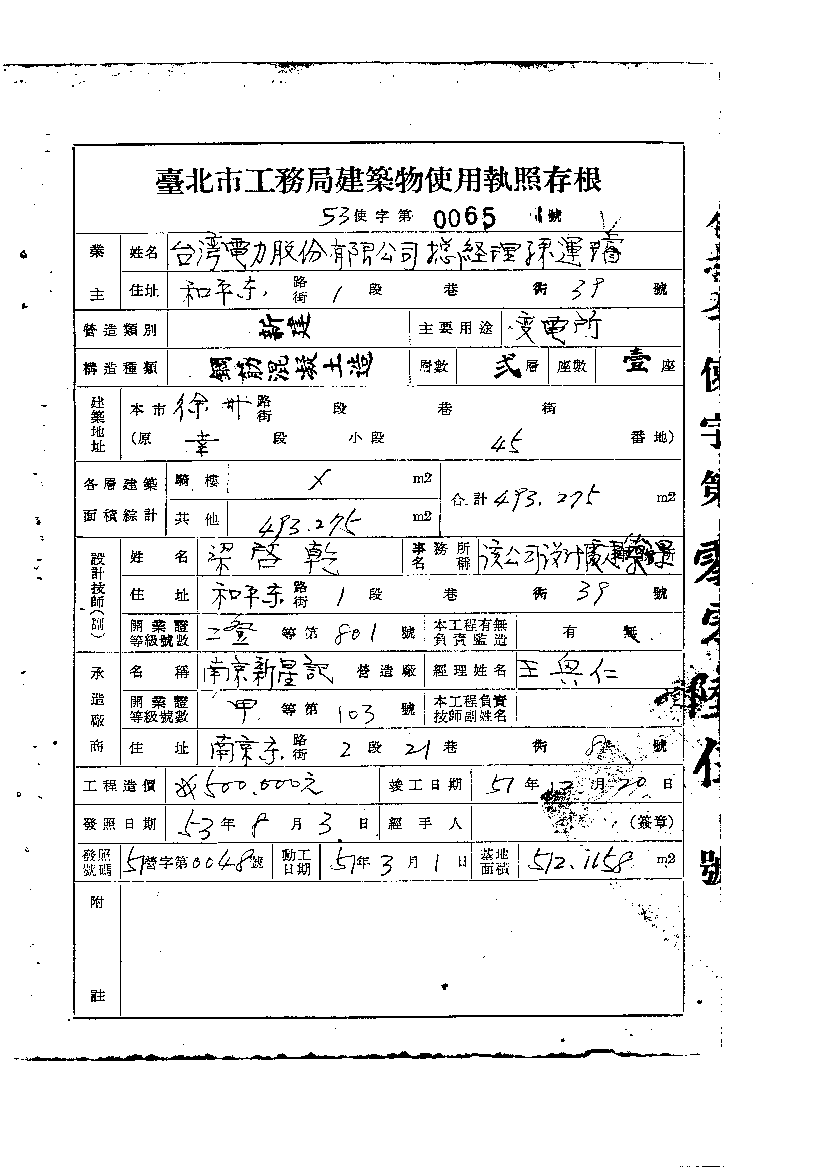 臺北市工務局建築物使用執照存根
53使字第 0065 號
業主 姓名 台湾電力股份有限公司總経理孫運璿
住址 和平东路街 1 段 巷 街 39 號
營造類別 新建 主要用途 变电所
構造種類 鋼筋混凝土造 層數 弍層 座數 壹座
建築地址 本市 徐州路街 段 巷 街
(原 幸 段 小段 45 番地)
各層建築面積綜計 騎樓 X m2 合計 493.275 m2
其他 493.275 m2
設計技師(副) 姓名 梁啓乾 事務所名稱 該公司設計處
住址 和平东路街 1 段 巷 街 39 號
開業證等級號數 等第 801 號 本工程有無負責監造 有 無
承造廠商 名稱 南京新星記 營造廠 經理姓名 王興仁
開業證等級號數 甲 等第 103 號 本工程負責技師副姓名
住址 南京东路街 2 段 21 巷 街 8 號
工程造價 500.000元 竣工日期 51年 12月 20日
發照日期 53年 8月 3日 經手人 (簽章)
發照號碼 51營字第0048號 動工日期 51年 3月 1日 基地面積 512.1158 m2
附註
使字第零零陸伍號